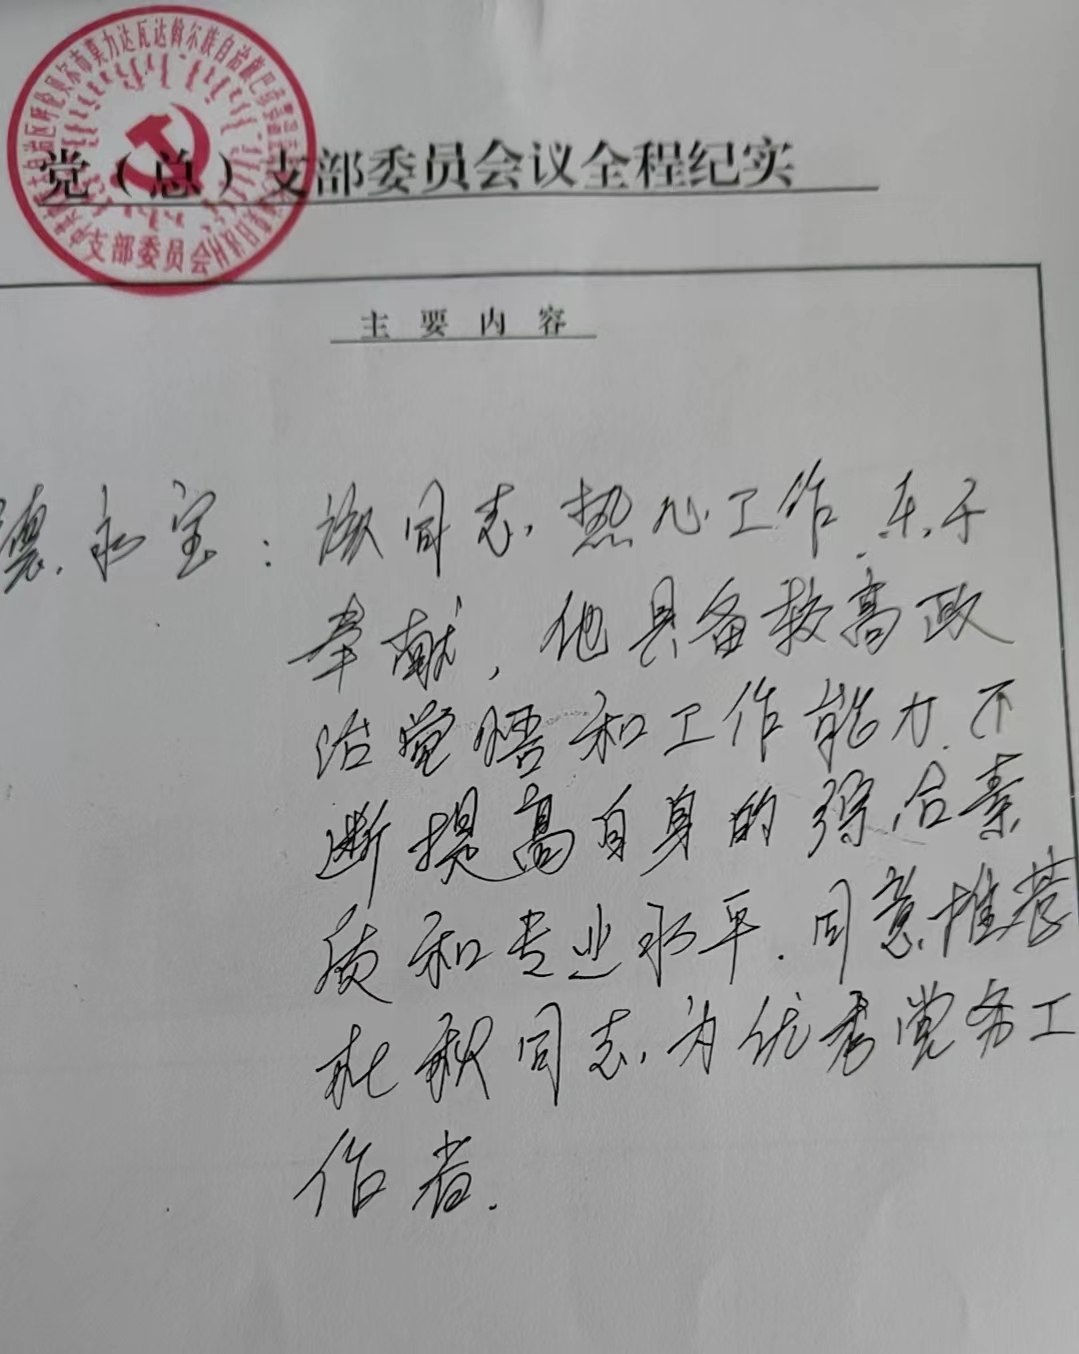 党（总）支部委员会议全程纪实
自治区呼伦贝尔市莫力达瓦达斡尔族自治旗巴彦
支部委员会
主要内容
永宝：该同志热心工作.乐于
奉献，他具备较高政
治觉悟和工作能力.不
断提高自身的综合素
质和专业水平.同意推荐
同志为优秀党务工
作者.